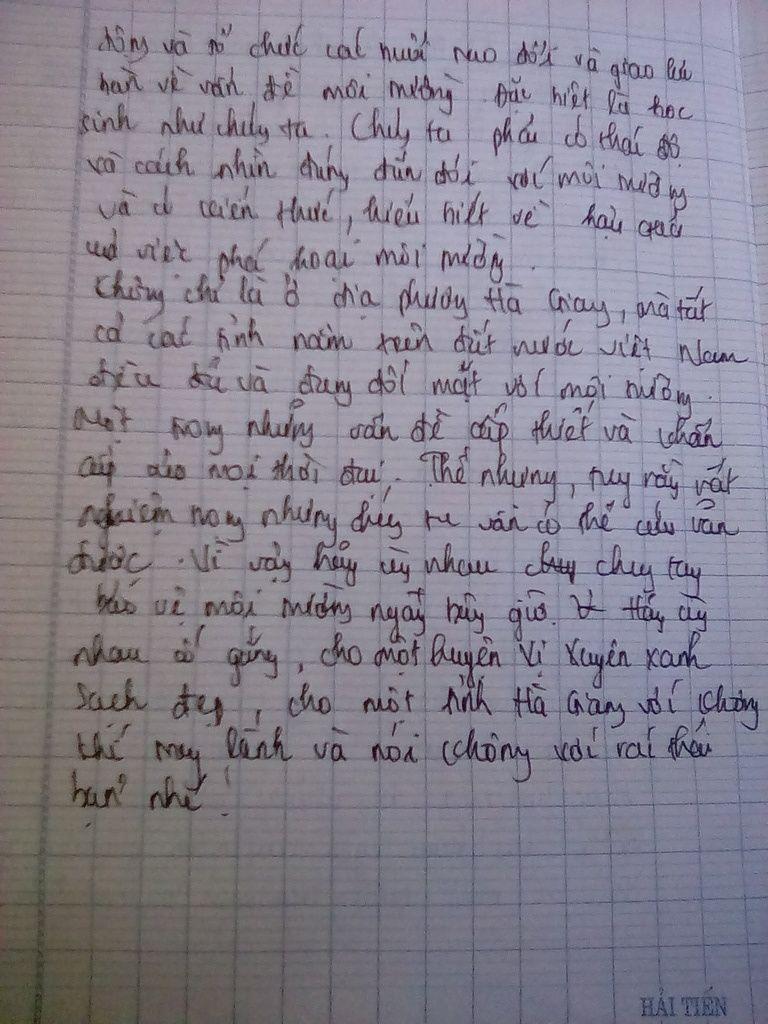 động và tổ chức các buổi trao đổi và giao lưu
bàn về vấn đề môi trường. Đặc biệt là học
sinh như chúng ta. Chúng ta phải có thái độ
và cách nhìn đúng đắn đối với môi trường
và có kiến thức, hiểu biết về hậu quả
của việc phá hoại môi trường.
Không chỉ là ở địa phương Hà Giang, mà tất
cả các tỉnh nằm trên đất nước Việt Nam
đều đã và đang đối mặt với môi trường.
Một trong những vấn đề cấp thiết và
mọi thời đại. Thế nhưng, tuy rằng rất
nghiêm trọng nhưng chúng ta vẫn có thể cứu vãn
được. Vì vậy hãy cùng nhau chung tay
bảo vệ môi trường ngay bây giờ. Hãy cùng
nhau cố gắng, cho một huyện Vị Xuyên xanh
sạch đẹp, cho một tỉnh Hà Giang với không
khí trong lành và nói không với rác thải
bạn nhé!
HẢI TIẾN